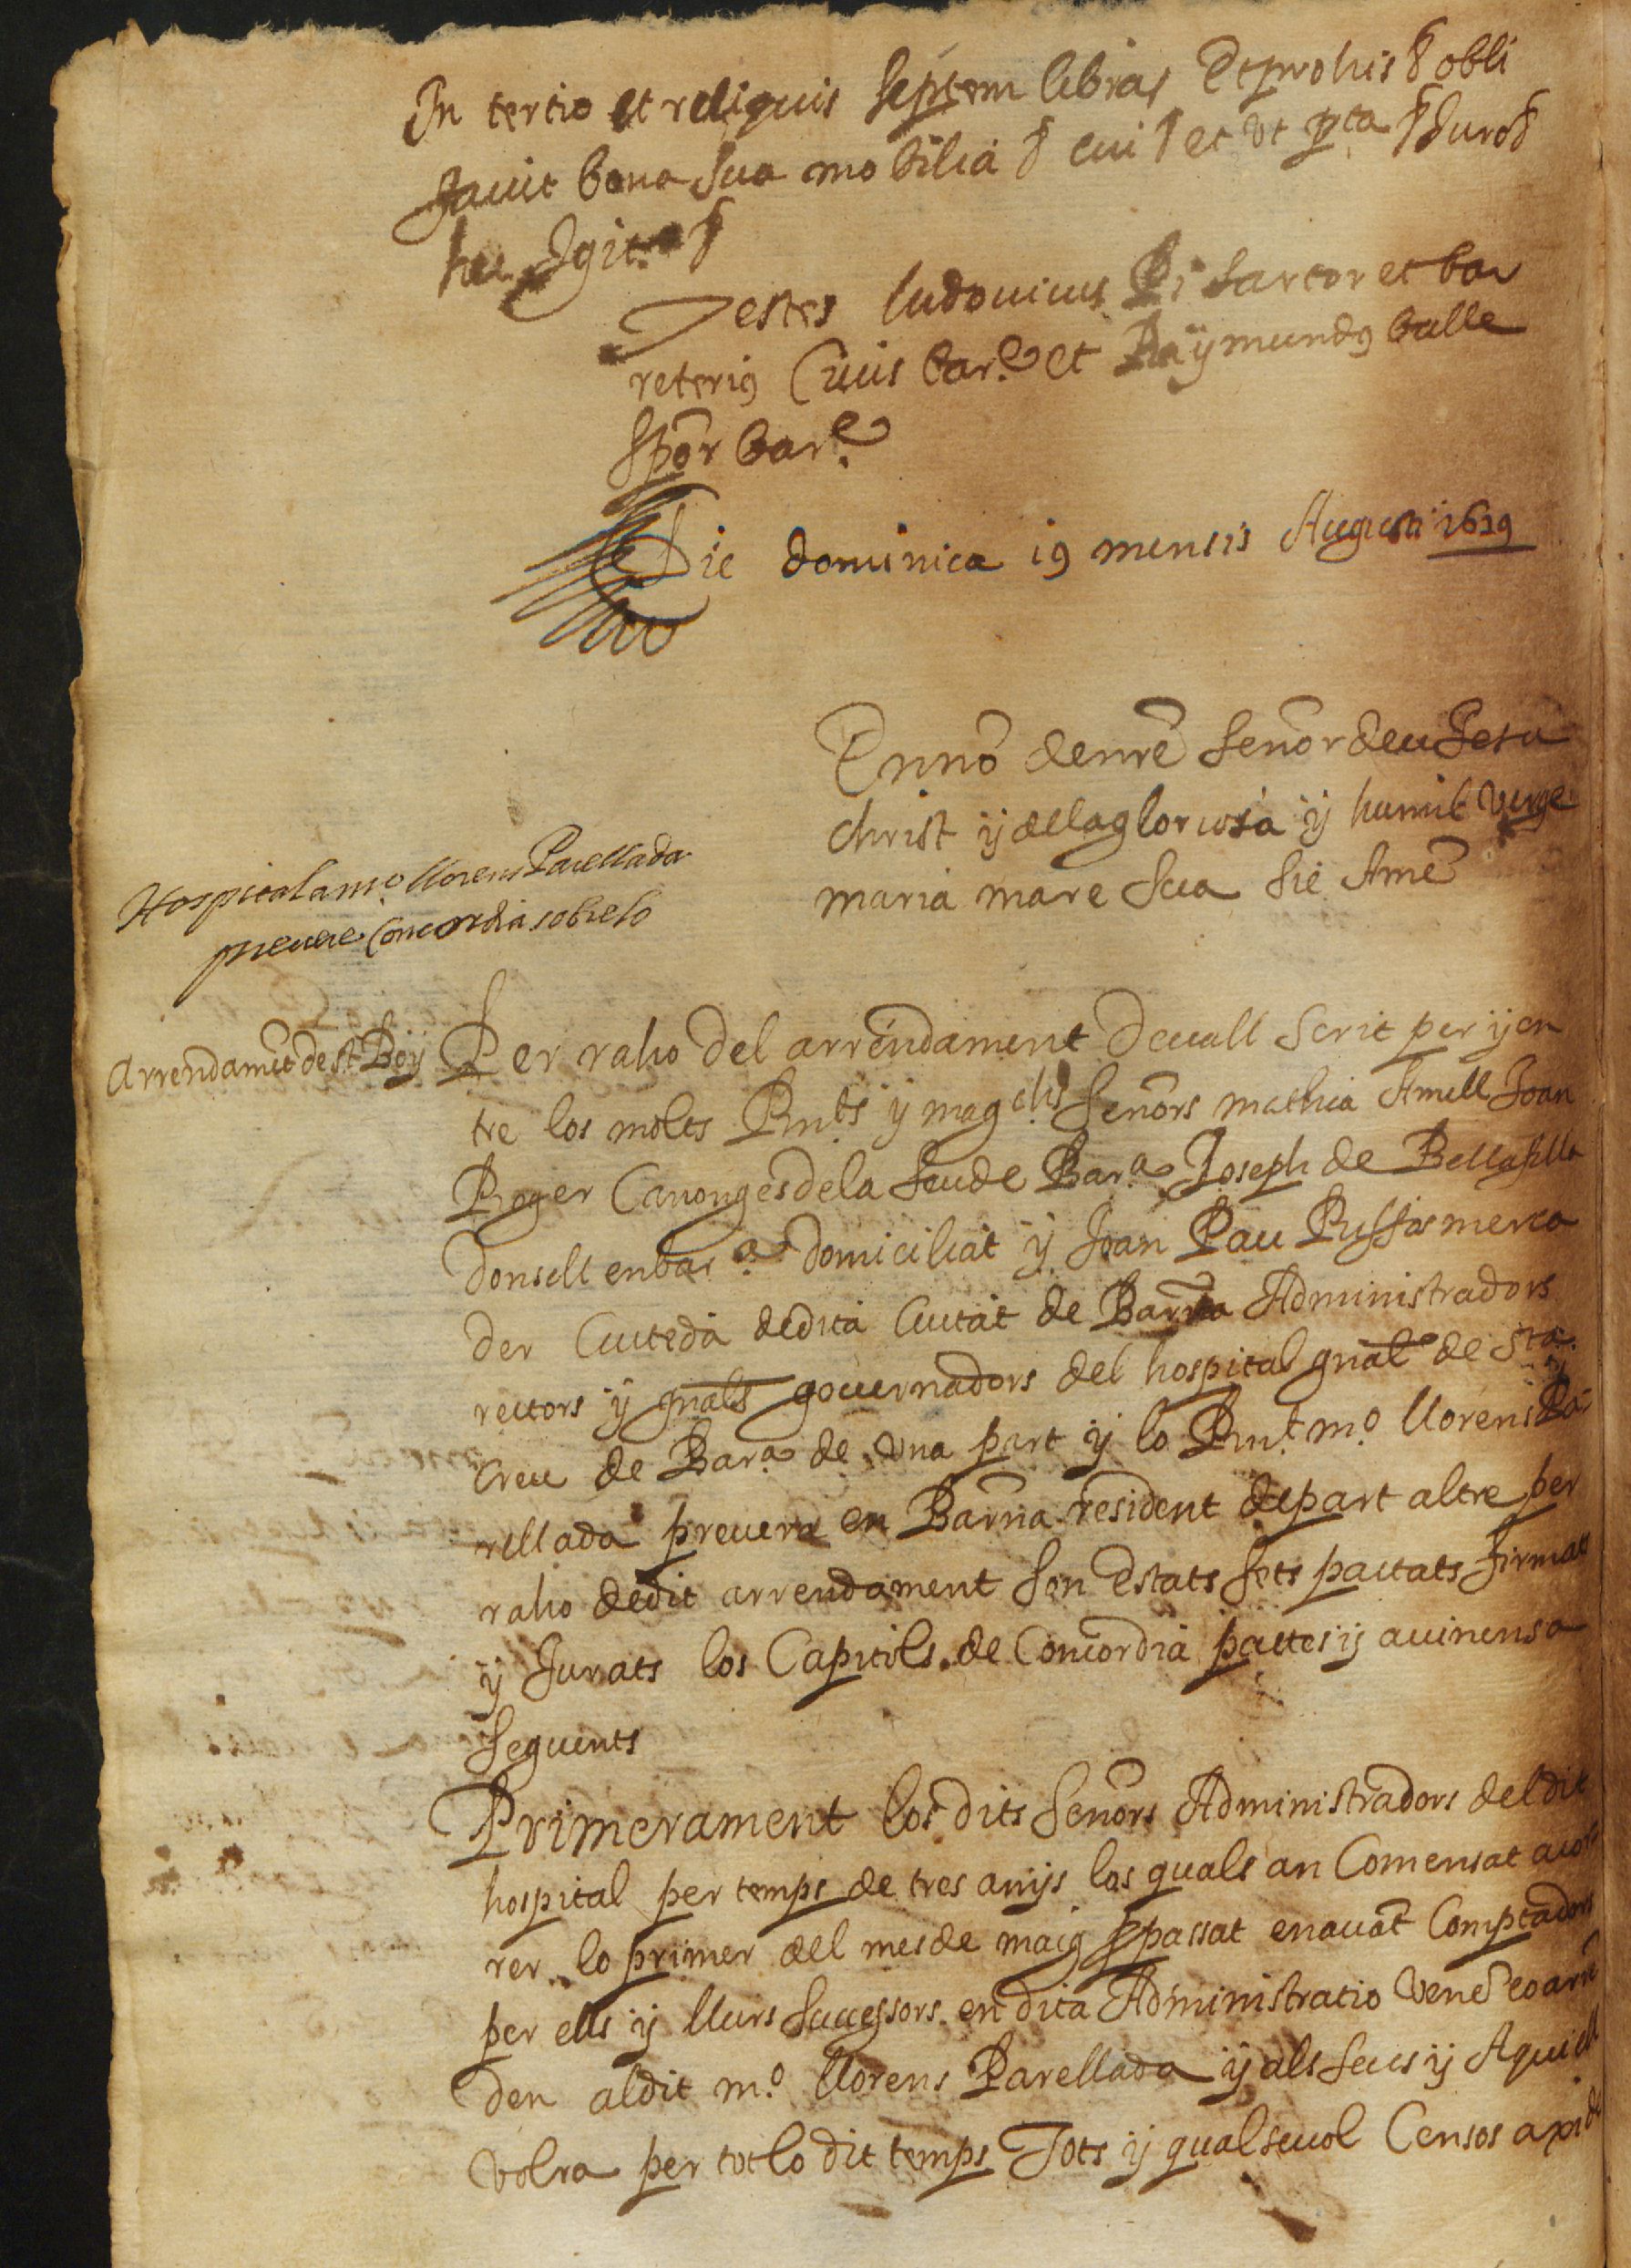 In tertio et reliquis septem libras Et pro his § obli
gauit bona sua mobilia § cui § et ut pta § Juro §
hec Igitur §
Testes ludouicus Pi sartor et bar
reterius Ciuis bar.e et Raÿmundus balle
sptor bar.e
Die dominica 19 mensis Augusti 1629
En nõ de nrẽ Señor deu Jesu
christ ÿ de la gloriosa ÿ humil Verge
maria mare sua sie Amẽ
Hospital a mº llorens Parellada
preuere Concordia sobre lo
Arrendamẽt de st Boÿ
Per raho del arrendament deuall scrit per ÿ en
tre los molts Rnts ÿ magchs Señors mathia Amell Joan
Roger Canonges de la seu de Bar.a Joseph de Bellafilla
donsell en bar.a domiciliat ÿ Joan Pau Pussas merca
der Ciutedà de dita Ciutat de Barna Administradors
rectors ÿ gnals gouernadors del hospital gnal de sta.
creu de Bar.a de vna part ÿ lo Rnt mº llorens Pa
rellada preuere en Barna resident de part altre per
raho de dit arrendament son estats fets pactats firmats
ÿ Jurats los Capitols de Concordia pactes ÿ auinensa
seguents
Primerament los dits Señors Administradors del dit
hospital per temps de tres anÿs los quals an Comensat a cor
rer lo primer del mes de maig ppassat en auãt Comptadors
per ells ÿ llurs successors en dita Administratio Venẽ eo arrẽ
den al dit mº llorens Parellada ÿ als seus ÿ A qui ell
Volra per tot lo dit temps Tots ÿ qualseuol Censos axi de